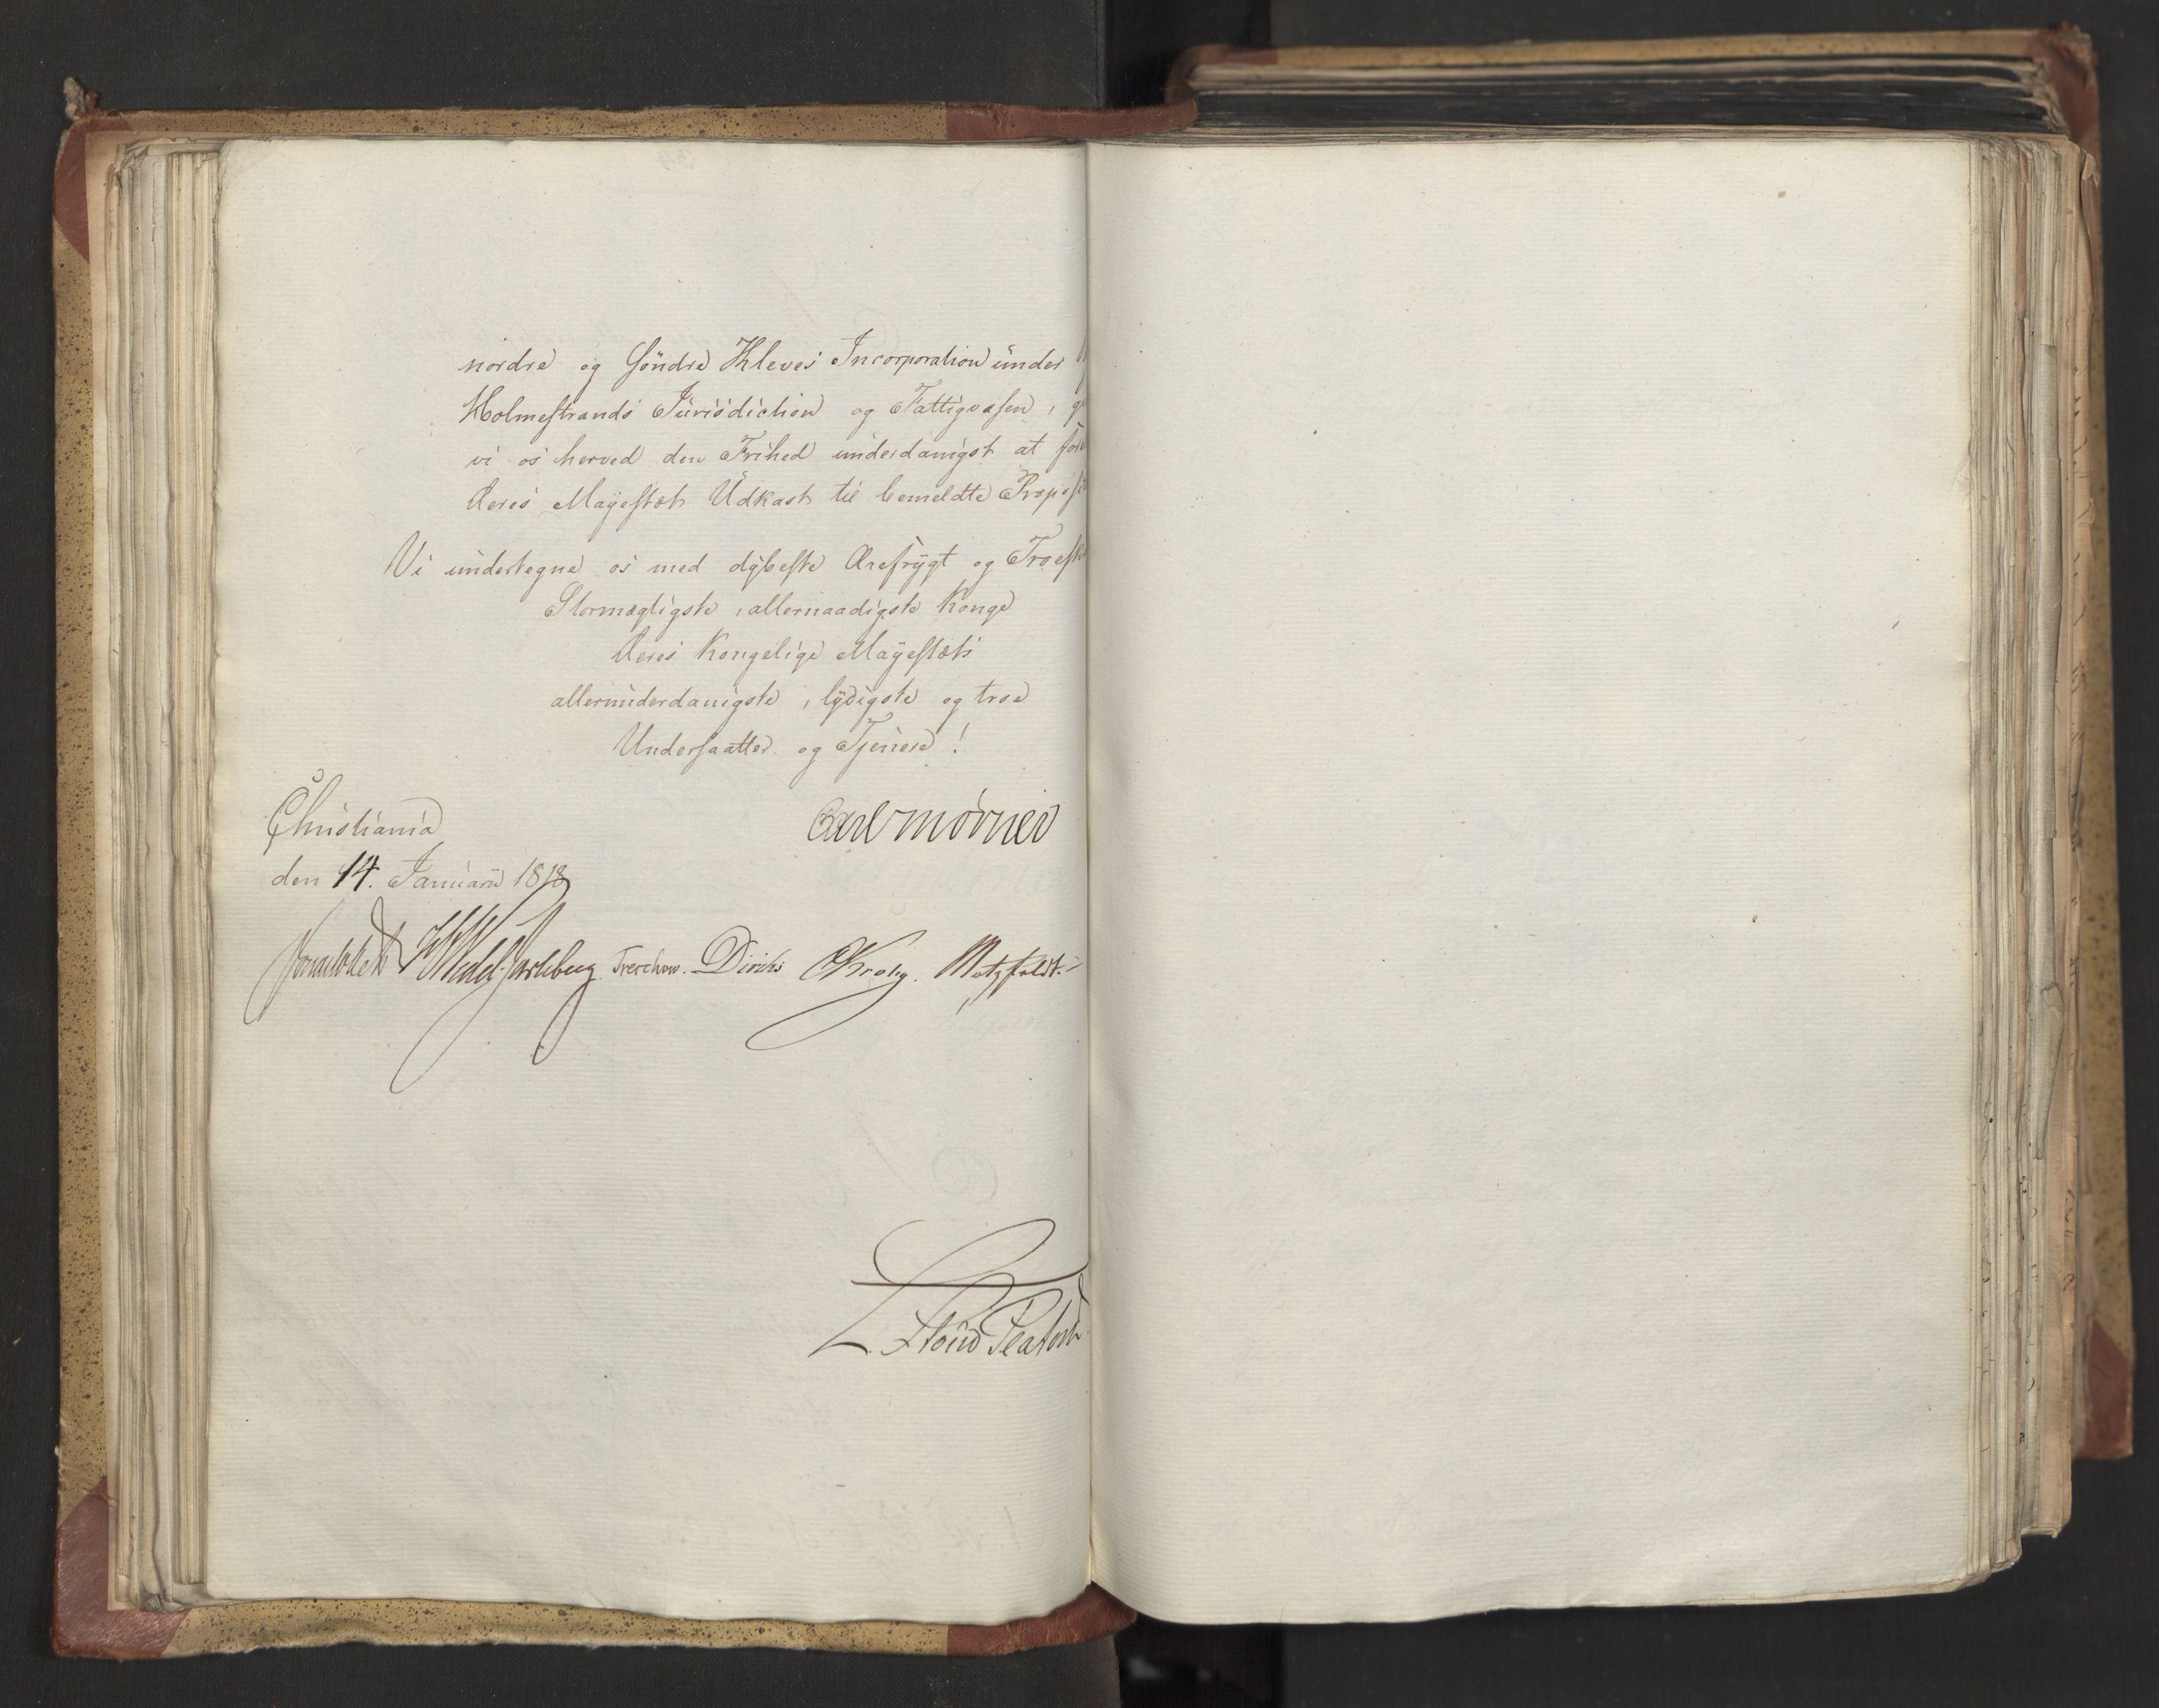 nordre og søndre Kleves Incorporation under
Holmestrands Jurisdiction og Fattigvæsen,
vi os herved den Frihed underdanigst at
Deres Mayestæt Udkast til bemeldte
Vi undertegne os med dybeste Ærefrygt og
Stormægtigste, allernaadigste Konge
Deres Kongelige Mayestæts
allerunderdanigste, lydigste og troe
Undersaatter og Tjenere!
Christiania
Carl Mörner
den 14. Januarii 1818
Sommerhielm HWedel Jarlsberg Treschow. Diriks CKrohg. Motzfeldt.